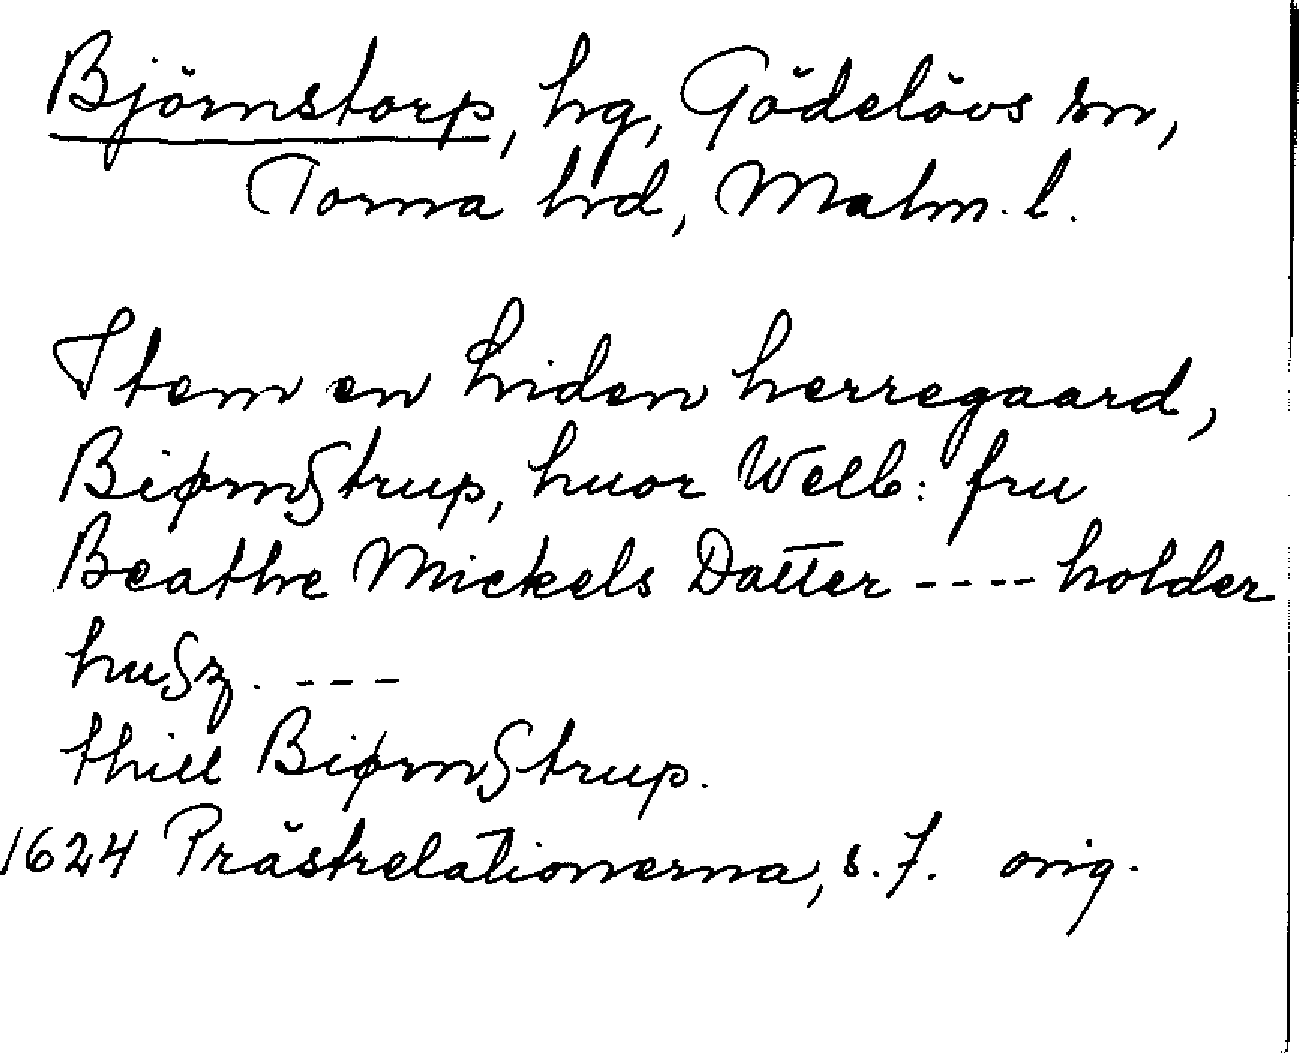 Björnstorp, hg, Gödelövs sn,
Torna hd, Malm. l.
Item en liden herregaard,
Biørnstrup, huor Welb: fru
Beathe Mickels Datter ---- holder
husz. ---
thill Biørnstrup.
1624 Prästrelationerna, s. 7. orig.